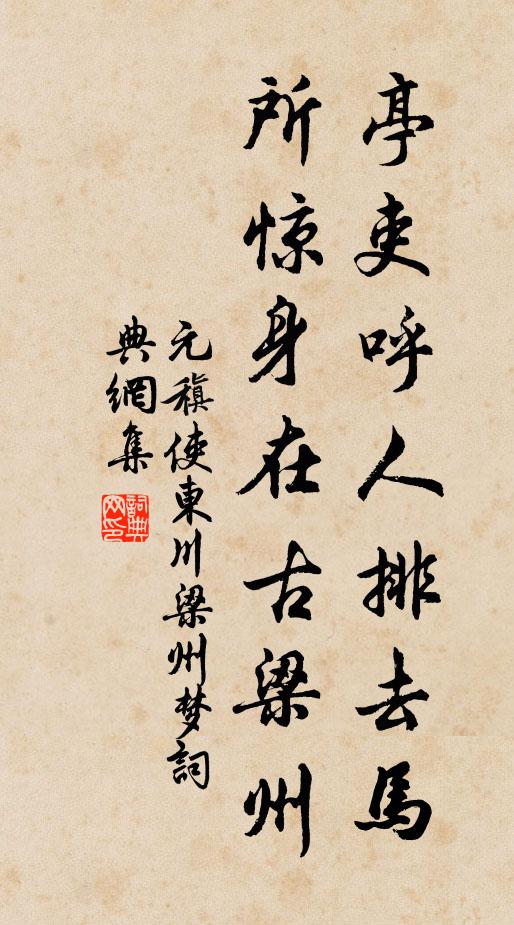 亭吏呼人排去馬
所惊身在古梁州
元稹使東川梁州梦詞
典網集
詞典网印